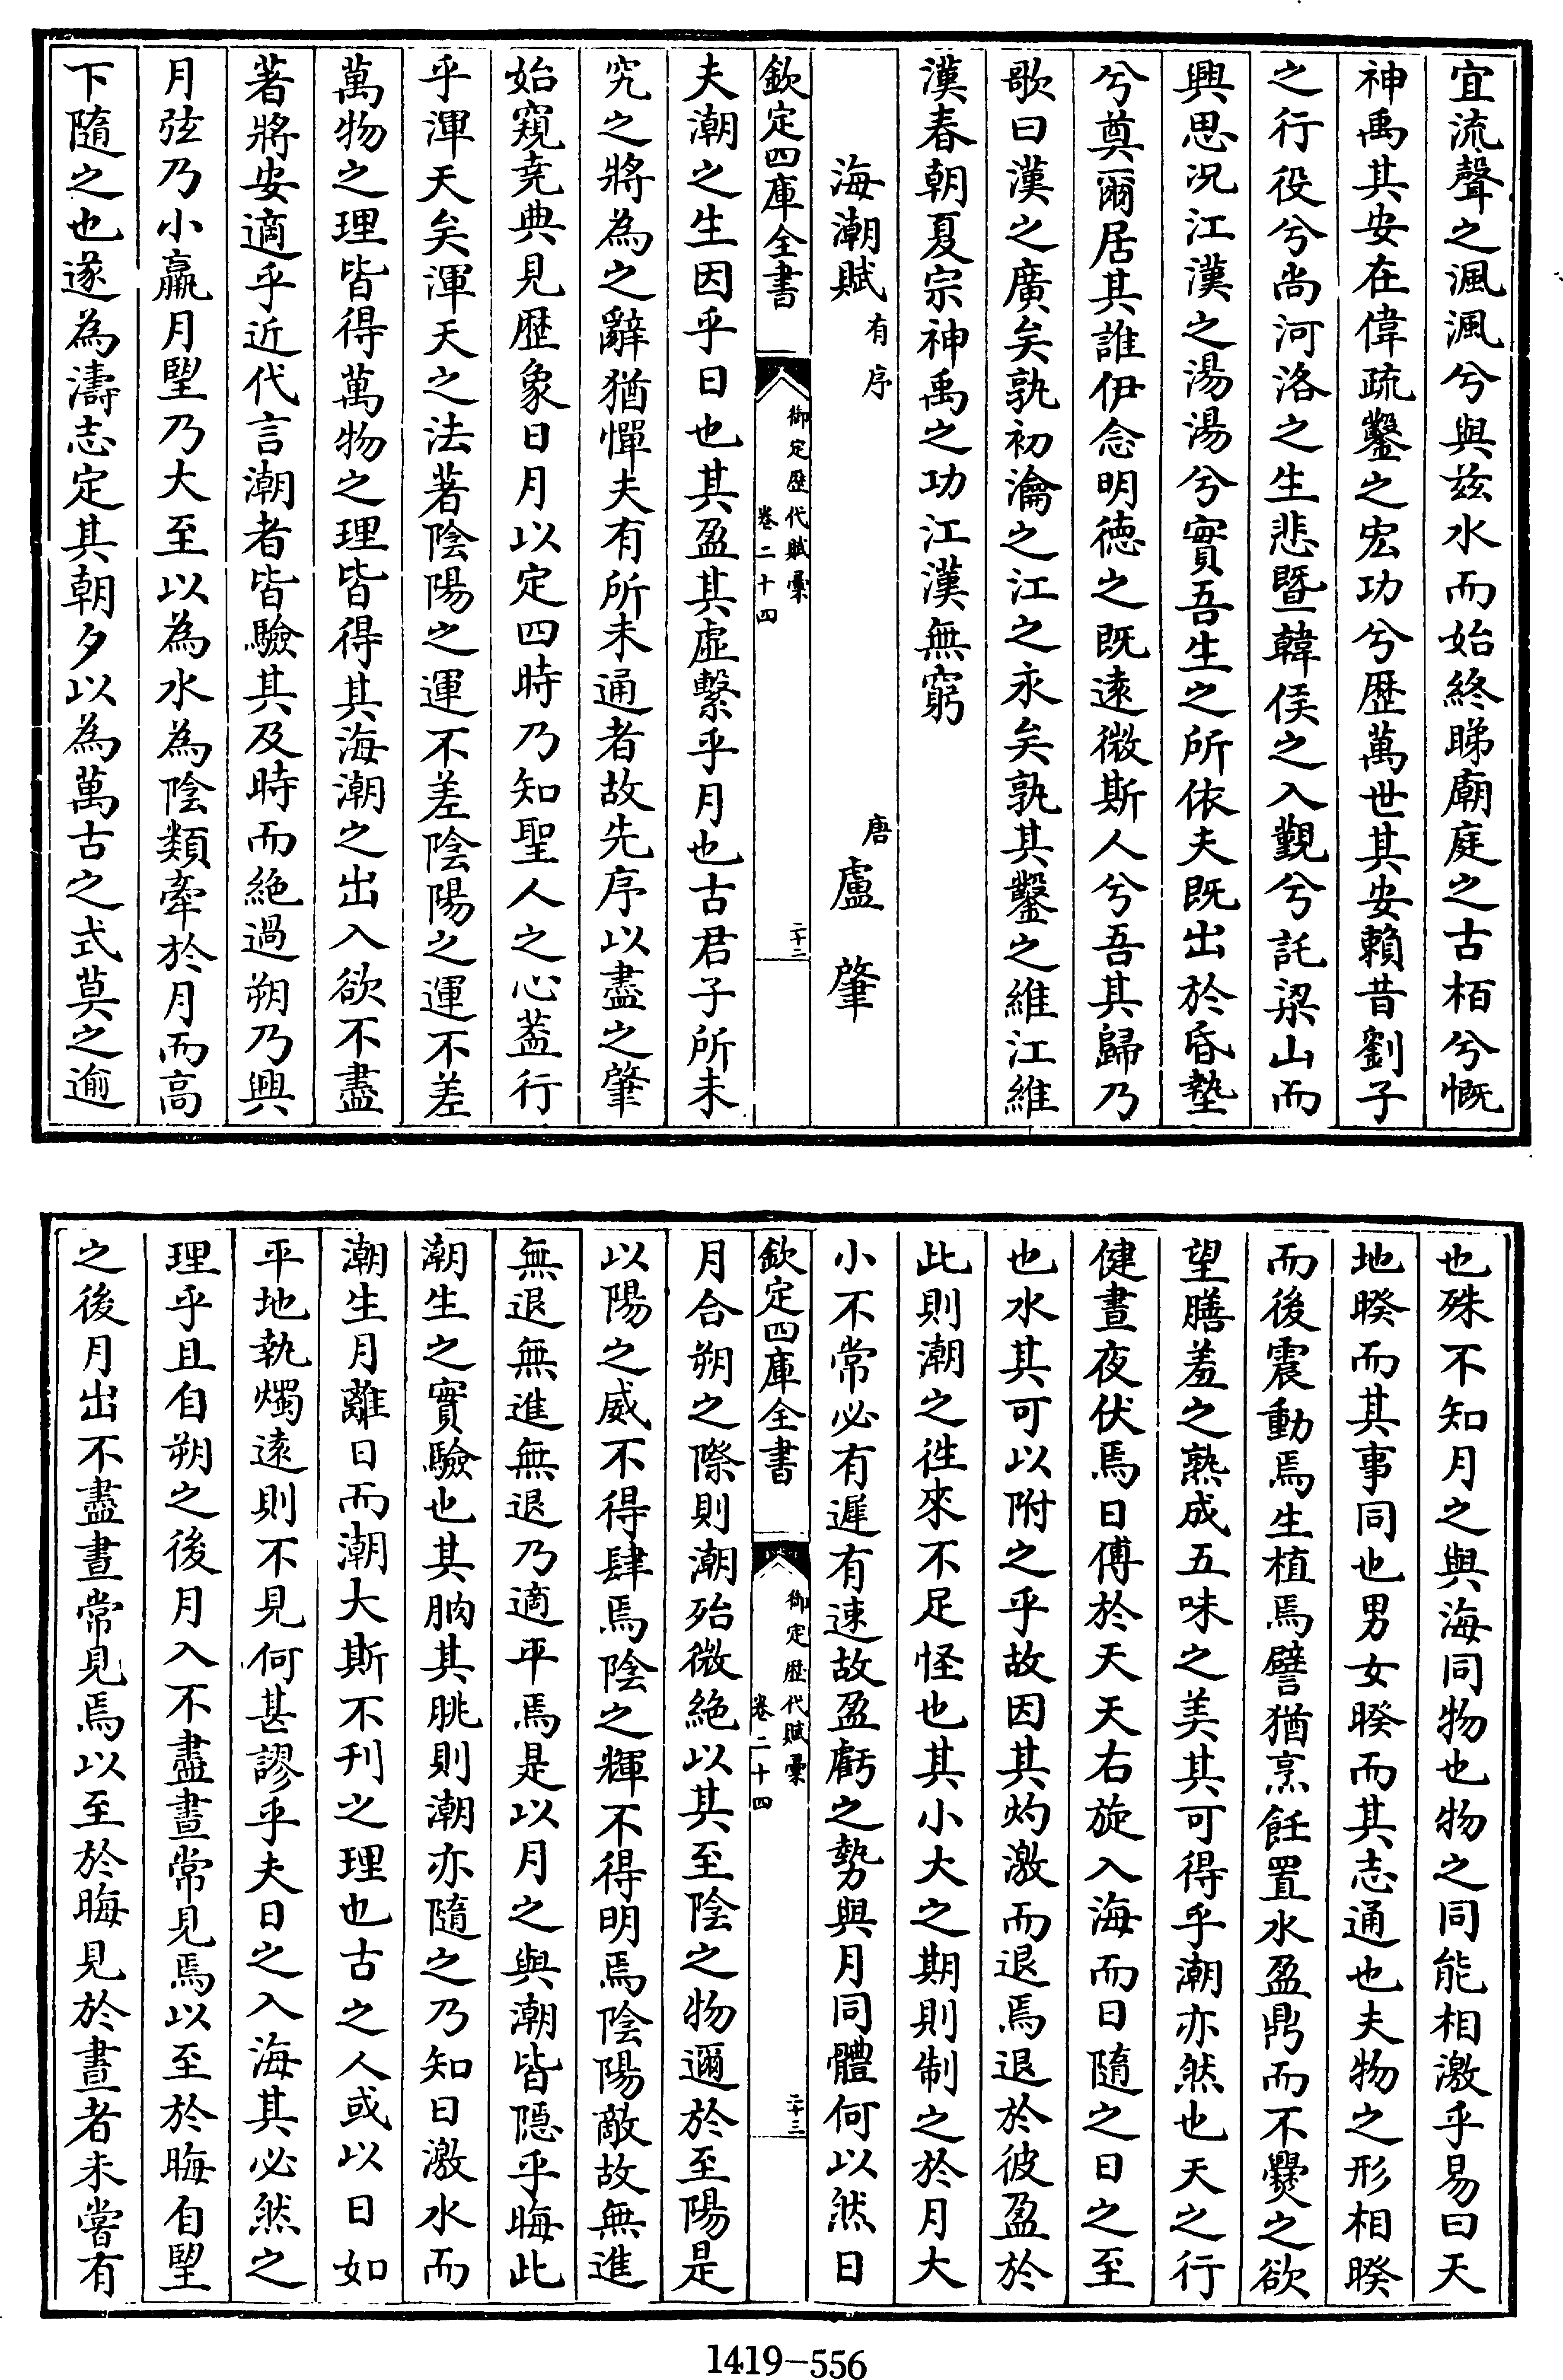 宜流聲之渢渢兮與兹水而始終睇廟庭之古栢兮慨
神禹其安在偉疏鑿之宏功兮歴萬世其安賴昔劉子
之行役兮尚河洛之生悲暨韓侯之入覲兮託梁山而
興思况江漢之湯湯兮實吾生之所依夫既出於昏墊
兮奠爾居其誰伊念明徳之既逺微斯人兮吾其歸乃
歌曰漢之廣矣孰初瀹之江之永矣孰其鑿之維江維
漢春朝夏宗神禹之功江漢無窮
海潮賦有序 唐盧肇
欽定四庫全書 御定歴代賦彚 卷二十四 二十二
夫潮之生因乎日也其盈其虛繫乎月也古君子所未
究之將為之辭猶憚夫有所未通者故先序以盡之肇
始窺堯典見歴象日月以定四時乃知聖人之心葢行
乎渾天矣渾天之法著陰陽之運不差陰陽之運不差
萬物之理皆得萬物之理皆得其海潮之出入欲不盡
著將安適乎近代言潮者皆驗其及時而絶過朔乃興
月弦乃小贏月望乃大至以為水為陰類牽於月而高
下隨之也遂為濤志定其朝夕以為萬古之式莫之逾
也殊不知月之與海同物也物之同能相激乎易曰天
地暌而其事同也男女暌而其志通也夫物之形相暌
而後震動焉生植焉譬猶烹飪置水盈鼎而不爨之欲
望膳羞之熟成五味之美其可得乎潮亦然也天之行
健晝夜伏焉日傅於天天右旋入海而日隨之日之至
也水其可以附之乎故因其灼激而退焉退於彼盈於
此則潮之徃來不足怪也其小大之期則制之於月大
小不常必有遲有速故盈虧之勢與月同體何以然日
欽定四庫全書 御定歴代賦彚 卷二十四 二十三
月合朔之際則潮殆微絶以其至陰之物邇於至陽是
以陽之威不得肆焉陰之輝不得明焉陰陽敵故無進
無退無進無退乃適平焉是以月之與潮皆隠乎晦此
潮生之實驗也其朒其朓則潮亦隨之乃知日激水而
潮生月離日而潮大斯不刋之理也古之人或以日如
平地執燭逺則不見何甚謬乎夫日之入海其必然之
理乎且自朔之後月入不盡晝常見焉以至於晦自望
之後月出不盡晝常見焉以至於晦見於晝者未嘗有
1419—556